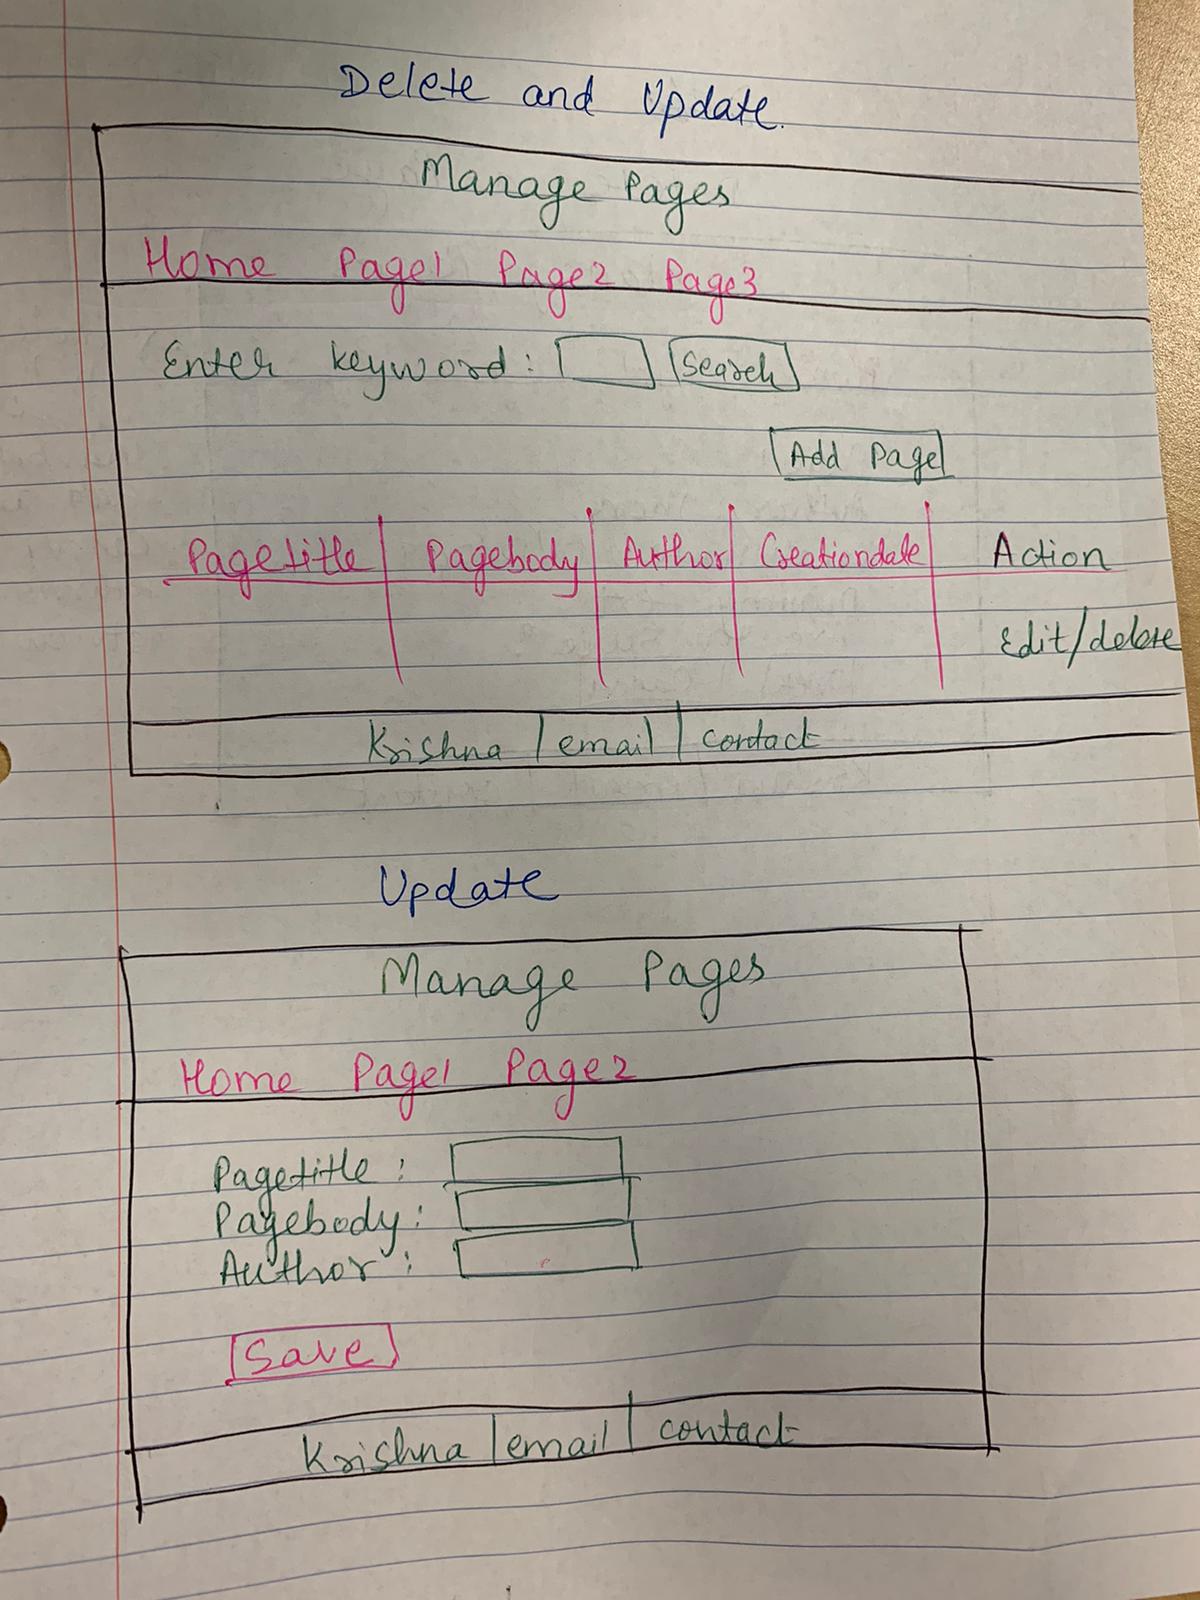 Delete and Update.
Manage Pages
Home Page1 Page2 Page3
Enter keyword: Search
Add Page
Pagetitle Pagebody Author Creationdate Action
Edit/delete
Krishna | email | contact
Update
Manage Pages
Home Page1 Page2
Pagetitle:
Pagebody:
Author:
Save
Krishna | email | contact